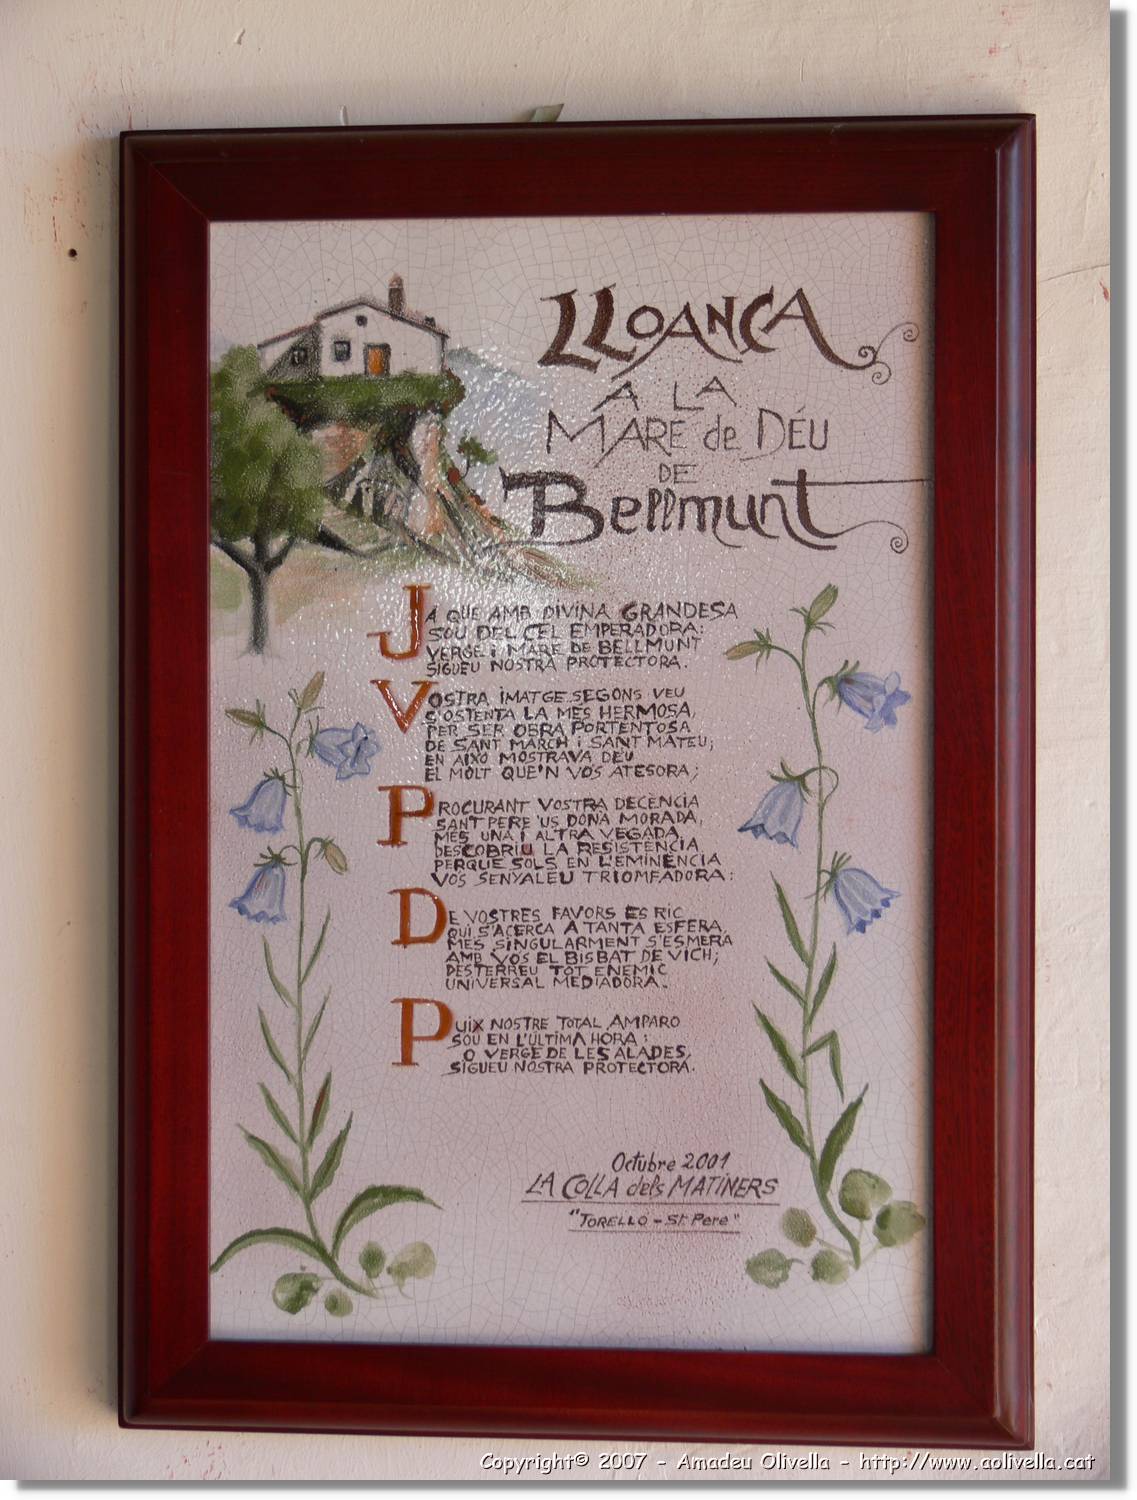 LLOANCA
A LA
MARE de DÉU
DE
Bellmunt
JA QUE AMB DIVINA GRANDESA
SOU DEL CEL EMPERADORA:
VERGE i MARE DE BELLMUNT
SIGUEU NOSTRA PROTECTORA.
VOSTRA IMATGE SEGONS VEU
S'OSTENTA LA MES HERMOSA,
PER SER OBRA PORTENTOSA
DE SANT MARCH i SANT MATEU;
EN AIXO MOSTRAVA DEU
EL MOLT QUE'N VÓS ATESORA;
PROCURANT VOSTRA DECÈNCIA
SANT PERE 'US DONA MORADA,
MES UNA I ALTRA VEGADA,
DESCOBRIU LA RESISTÈNCIA
PERQUE SOLS EN L'EMINÈNCIA
VÓS SENYALEU TRIOMFADORA:
DE VOSTRES FAVORS ES RIC
QUI S'ACERCA A TANTA ESFERA,
MES SINGULARMENT S'ESMERA
AMB VOS EL BISBAT DE VICH;
DESTERREU TOT ENEMIC
UNIVERSAL MEDIADORA.
PUIX NOSTRE TOTAL AMPARO
SOU EN L'ÚLTIMA HORA:
O VERGE DE LES ALADES,
SIGUEU NOSTRA PROTECTORA.
Octubre 2001
LA COLLA dels MATINERS
"TORELLO - St. Pere"
Copyright© 2007 - Amadeu Olivella - http://www.aolivella.cat